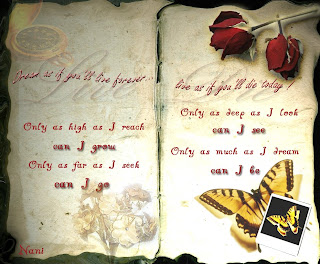 Dream as if you'll live forever...
Only as high as I reach
can I grow
Only as far as I seek
can I go
Nani
live as if you'll die today!
Only as deep as I look
can I see
Only as much as I dream
can I be